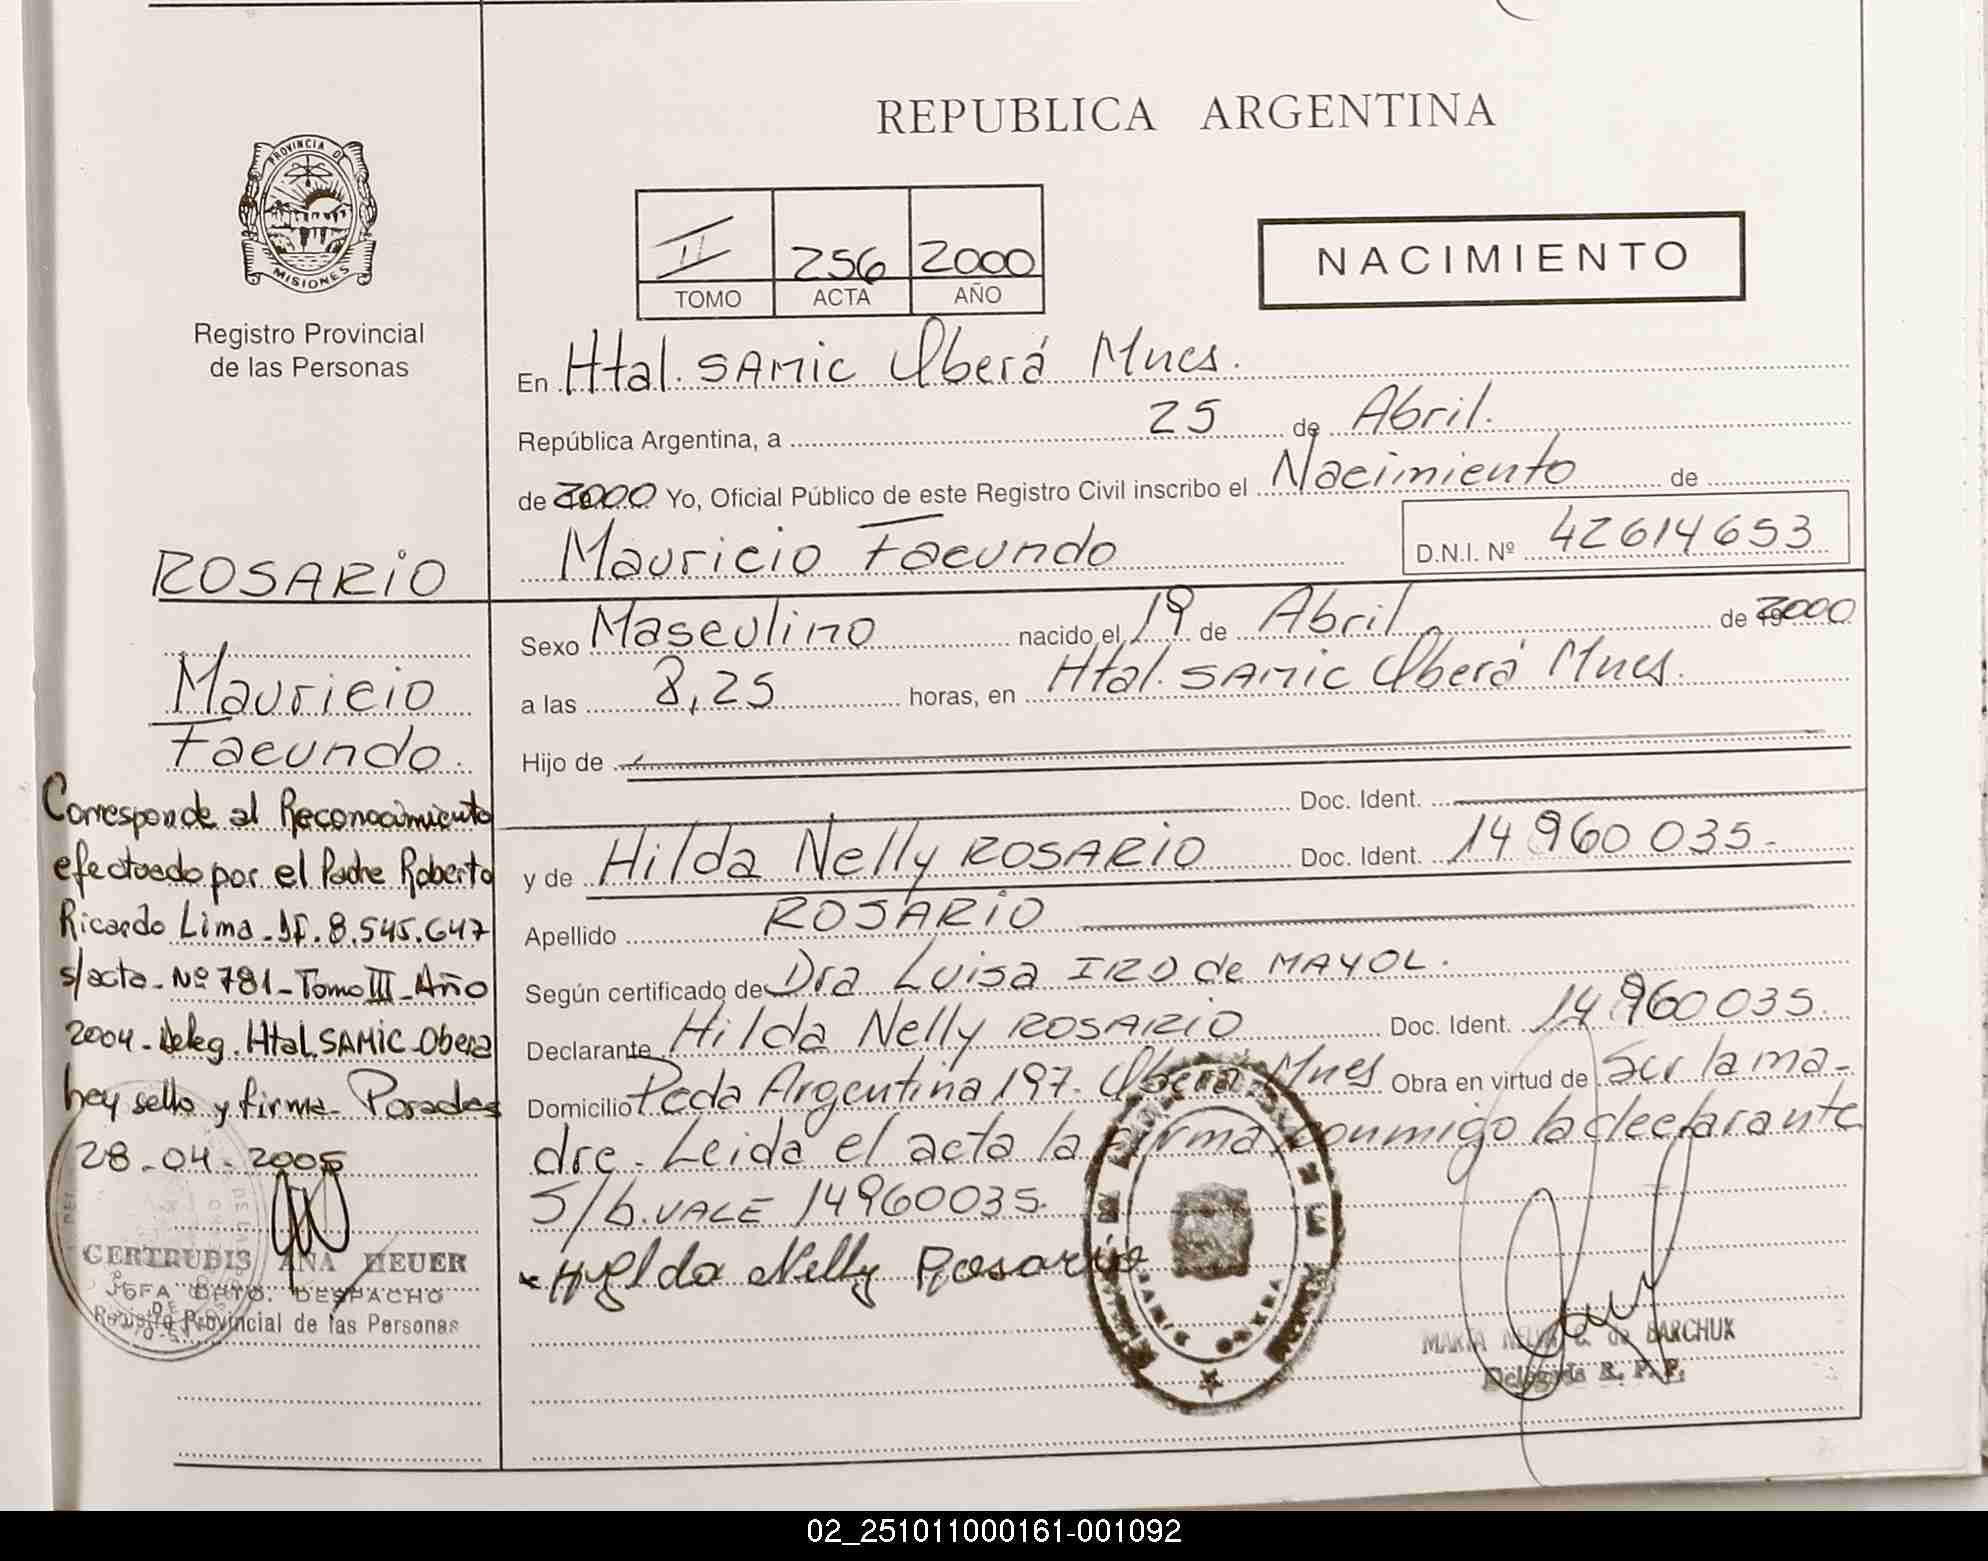 REPUBLICA ARGENTINA
PROVINCIA DE
MISIONES
Registro Provincial
de las Personas
II 256 2000
TOMO ACTA AÑO
NACIMIENTO
En Htal. SAMIC Oberá Mnes.
República Argentina, a 25 de Abril.
de 2000 Yo, Oficial Público de este Registro Civil inscribo el Nacimiento de
Mauricio Facundo D.N.I. Nº 42614653
Sexo Masculino nacido el 19 de Abril de 2000
a las 8,25 horas, en Htal. SAMIC Oberá Mnes.
Hijo de
Doc. Ident.
y de Hilda Nelly ROSARIO Doc. Ident. 14960035.-
Apellido ROSARIO
Según certificado de Dra Luisa IRO de MAYOL.
Declarante Hilda Nelly ROSARIO Doc. Ident. 14960035.
Domicilio Pcda Argentina 197. Oberá Mnes Obra en virtud de Ser la ma-
dre. Leida el acta la firma conmigo la declarante
S/b. VALE 14960035.
Hylda Nelly Rosario
de BARCHUK
Delegada R. P. P.
ROSARIO
Mauricio
Facundo.
Corresponde al Reconocimiento
efectuado por el Padre Roberto
Ricardo Lima. DI. 8.545.647
s/acta. Nº 781 - Tomo III - Año
2004 - Deleg. Htal. SAMIC - Obera
hay sello y firma - Posadas
28-04-2005
GERTRUDIS ANA HEUER
JEFA DPTO. DESPACHO
Registro Provincial de las Personas
02_251011000161-001092